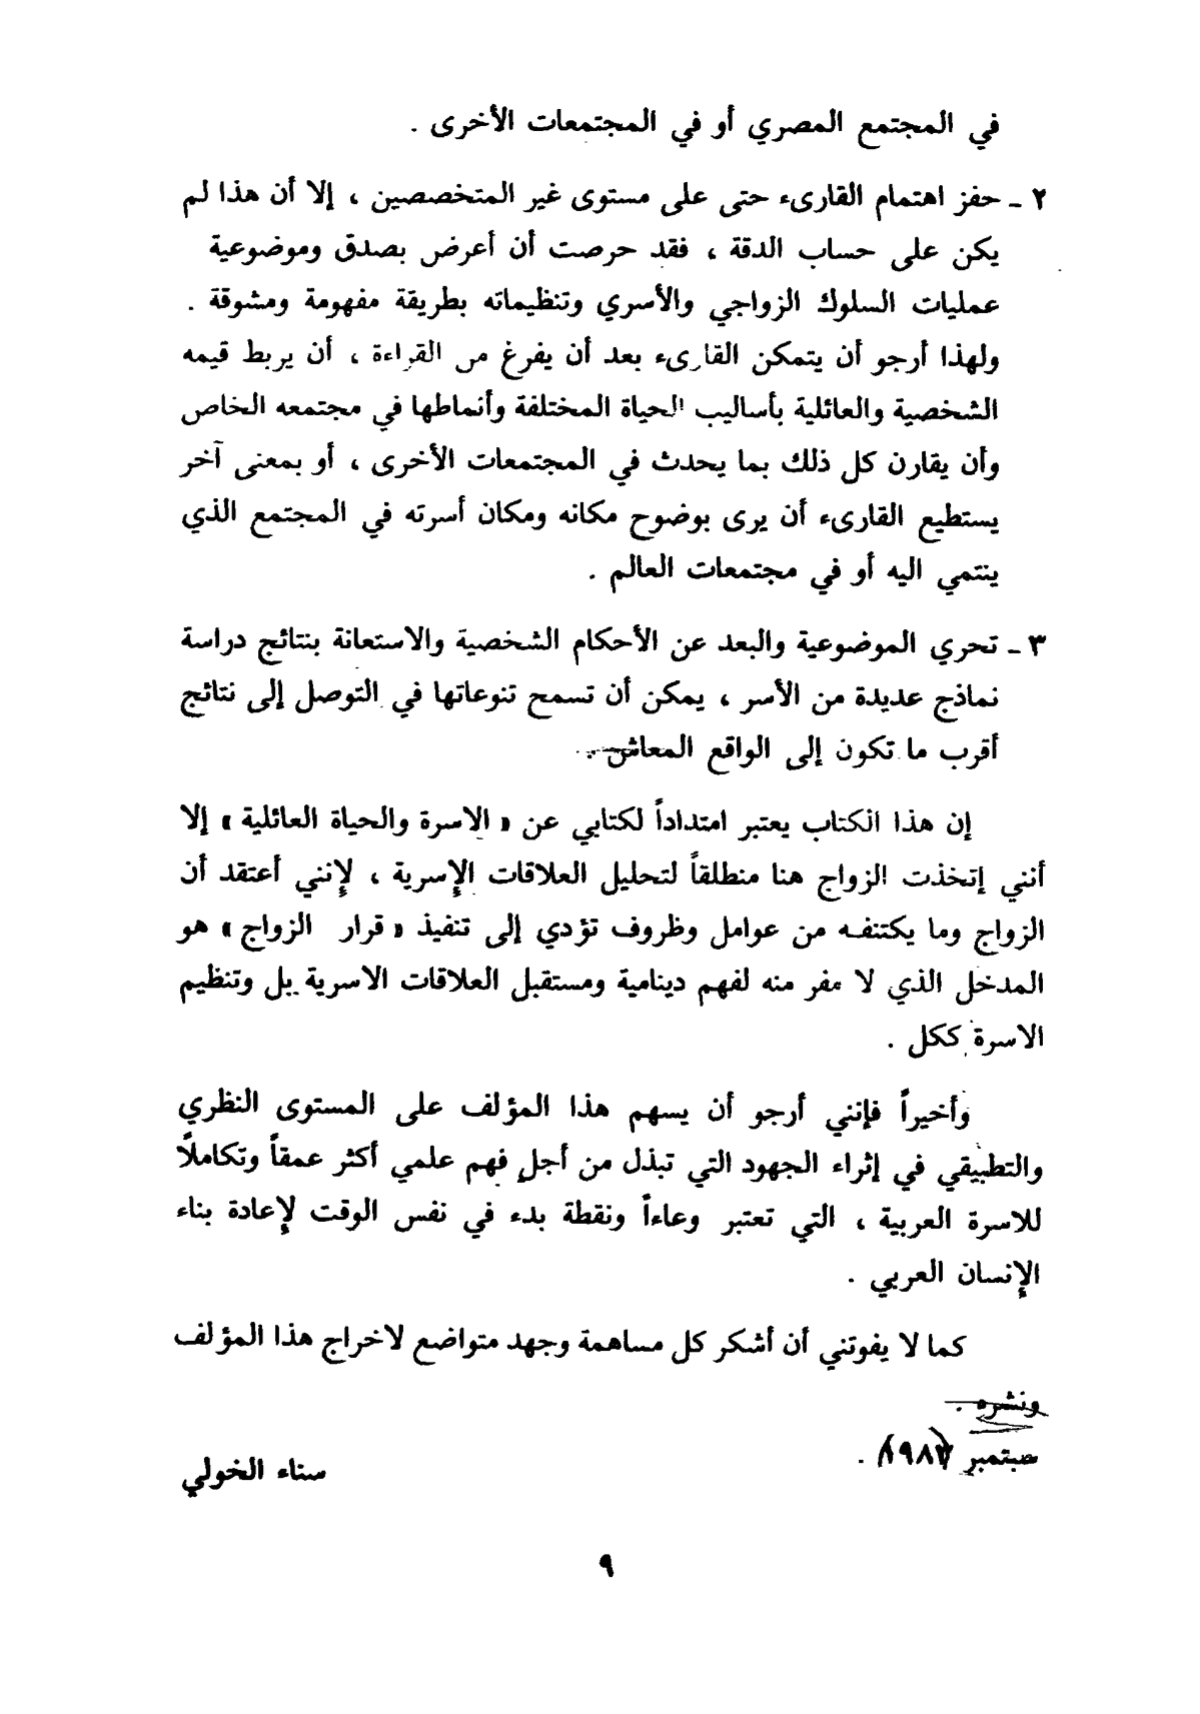 في المجتمع المصري أو في المجتمعات الأخرى .
٢ - حفز اهتمام القارىء حتى على مستوى غير المتخصصين ، إلا أن هذا لم
يكن على حساب الدقة ، فقد حرصت أن أعرض بصدق وموضوعية
عمليات السلوك الزواجي والأسري وتنظيماته بطريقة مفهومة ومشوقة .
ولهذا أرجو أن يتمكن القارىء بعد أن يفرغ من القراءة ، أن يربط قيمه
الشخصية والعائلية بأساليب الحياة المختلفة وأنماطها في مجتمعه الخاص
وأن يقارن كل ذلك بما يحدث في المجتمعات الأخرى ، أو بمعنى آخر
يستطيع القارىء أن يرى بوضوح مكانه ومكان أسرته في المجتمع الذي
ينتمي اليه أو في مجتمعات العالم .
٣ - تحري الموضوعية والبعد عن الأحكام الشخصية والاستعانة بنتائج دراسة
نماذج عديدة من الأسر ، يمكن أن تسمح تنوعاتها في التوصل إلى نتائج
أقرب ما تكون إلى الواقع المعاش .
إن هذا الكتاب يعتبر امتداداً لكتابي عن « الاسرة والحياة العائلية » إلا
أنني إتخذت الزواج هنا منطلقاً لتحليل العلاقات الإسرية ، لإنني أعتقد أن
الزواج وما يكتنفه من عوامل وظروف تؤدي إلى تنفيذ « قرار الزواج » هو
المدخل الذي لا مفر منه لفهم دينامية ومستقبل العلاقات الاسرية بل وتنظيم
الاسرة ككل .
وأخيراً فإنني أرجو أن يسهم هذا المؤلف على المستوى النظري
والتطبيقي في إثراء الجهود التي تبذل من أجل فهم علمي أكثر عمقاً وتكاملاً
للاسرة العربية ، التي تعتبر وعاءاً ونقطة بدء في نفس الوقت لإعادة بناء
الإنسان العربي .
كما لا يفوتني أن أشكر كل مساهمة وجهد متواضع لاخراج هذا المؤلف
ونشره .
سبتمبر .
سناء الخولي
٩